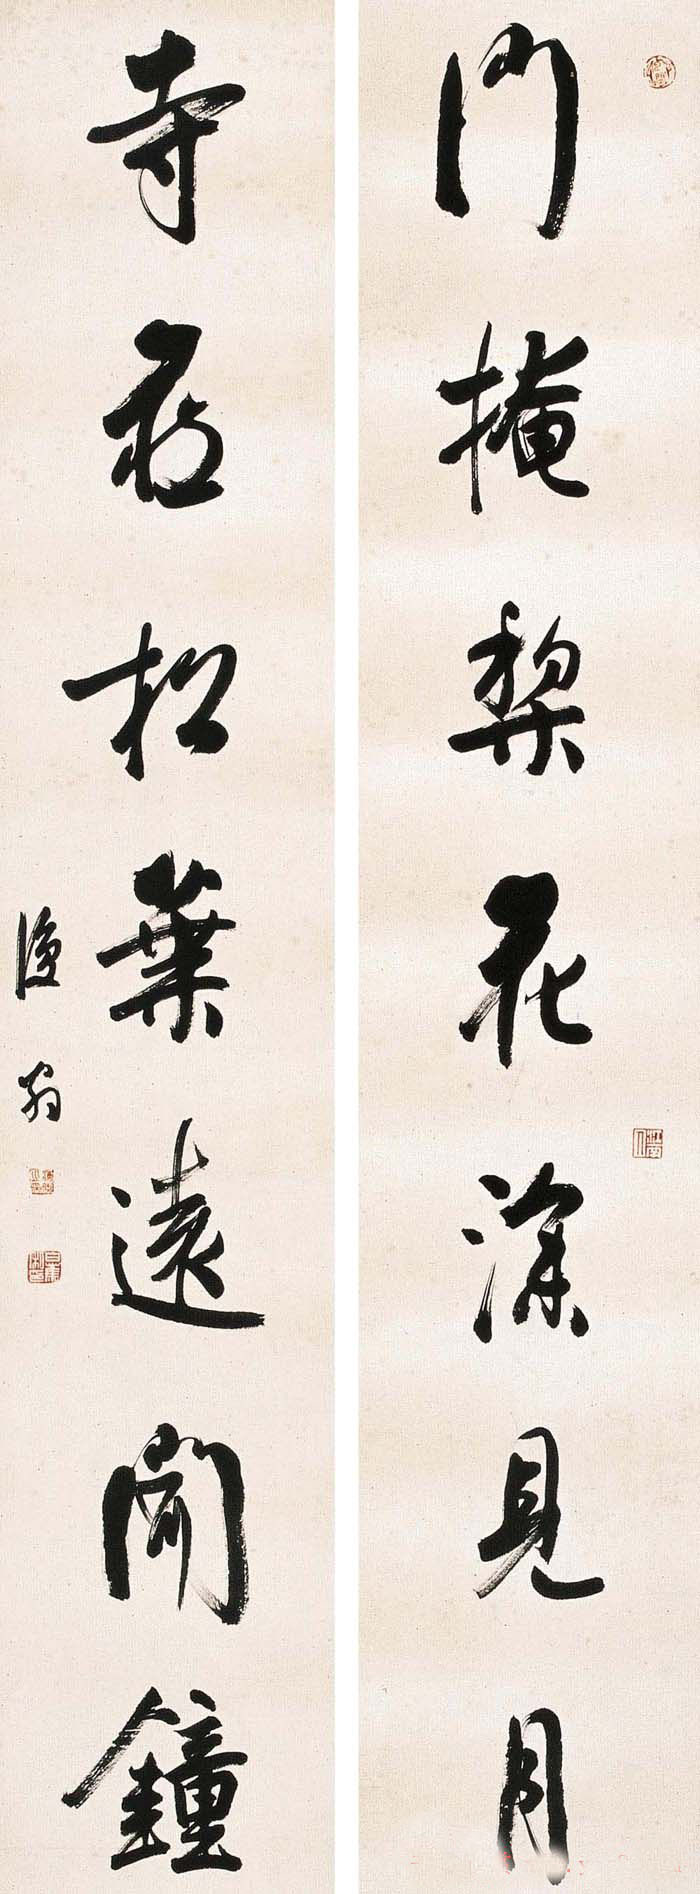 門掩梨花深見月
寺藏松葉遠聞鐘